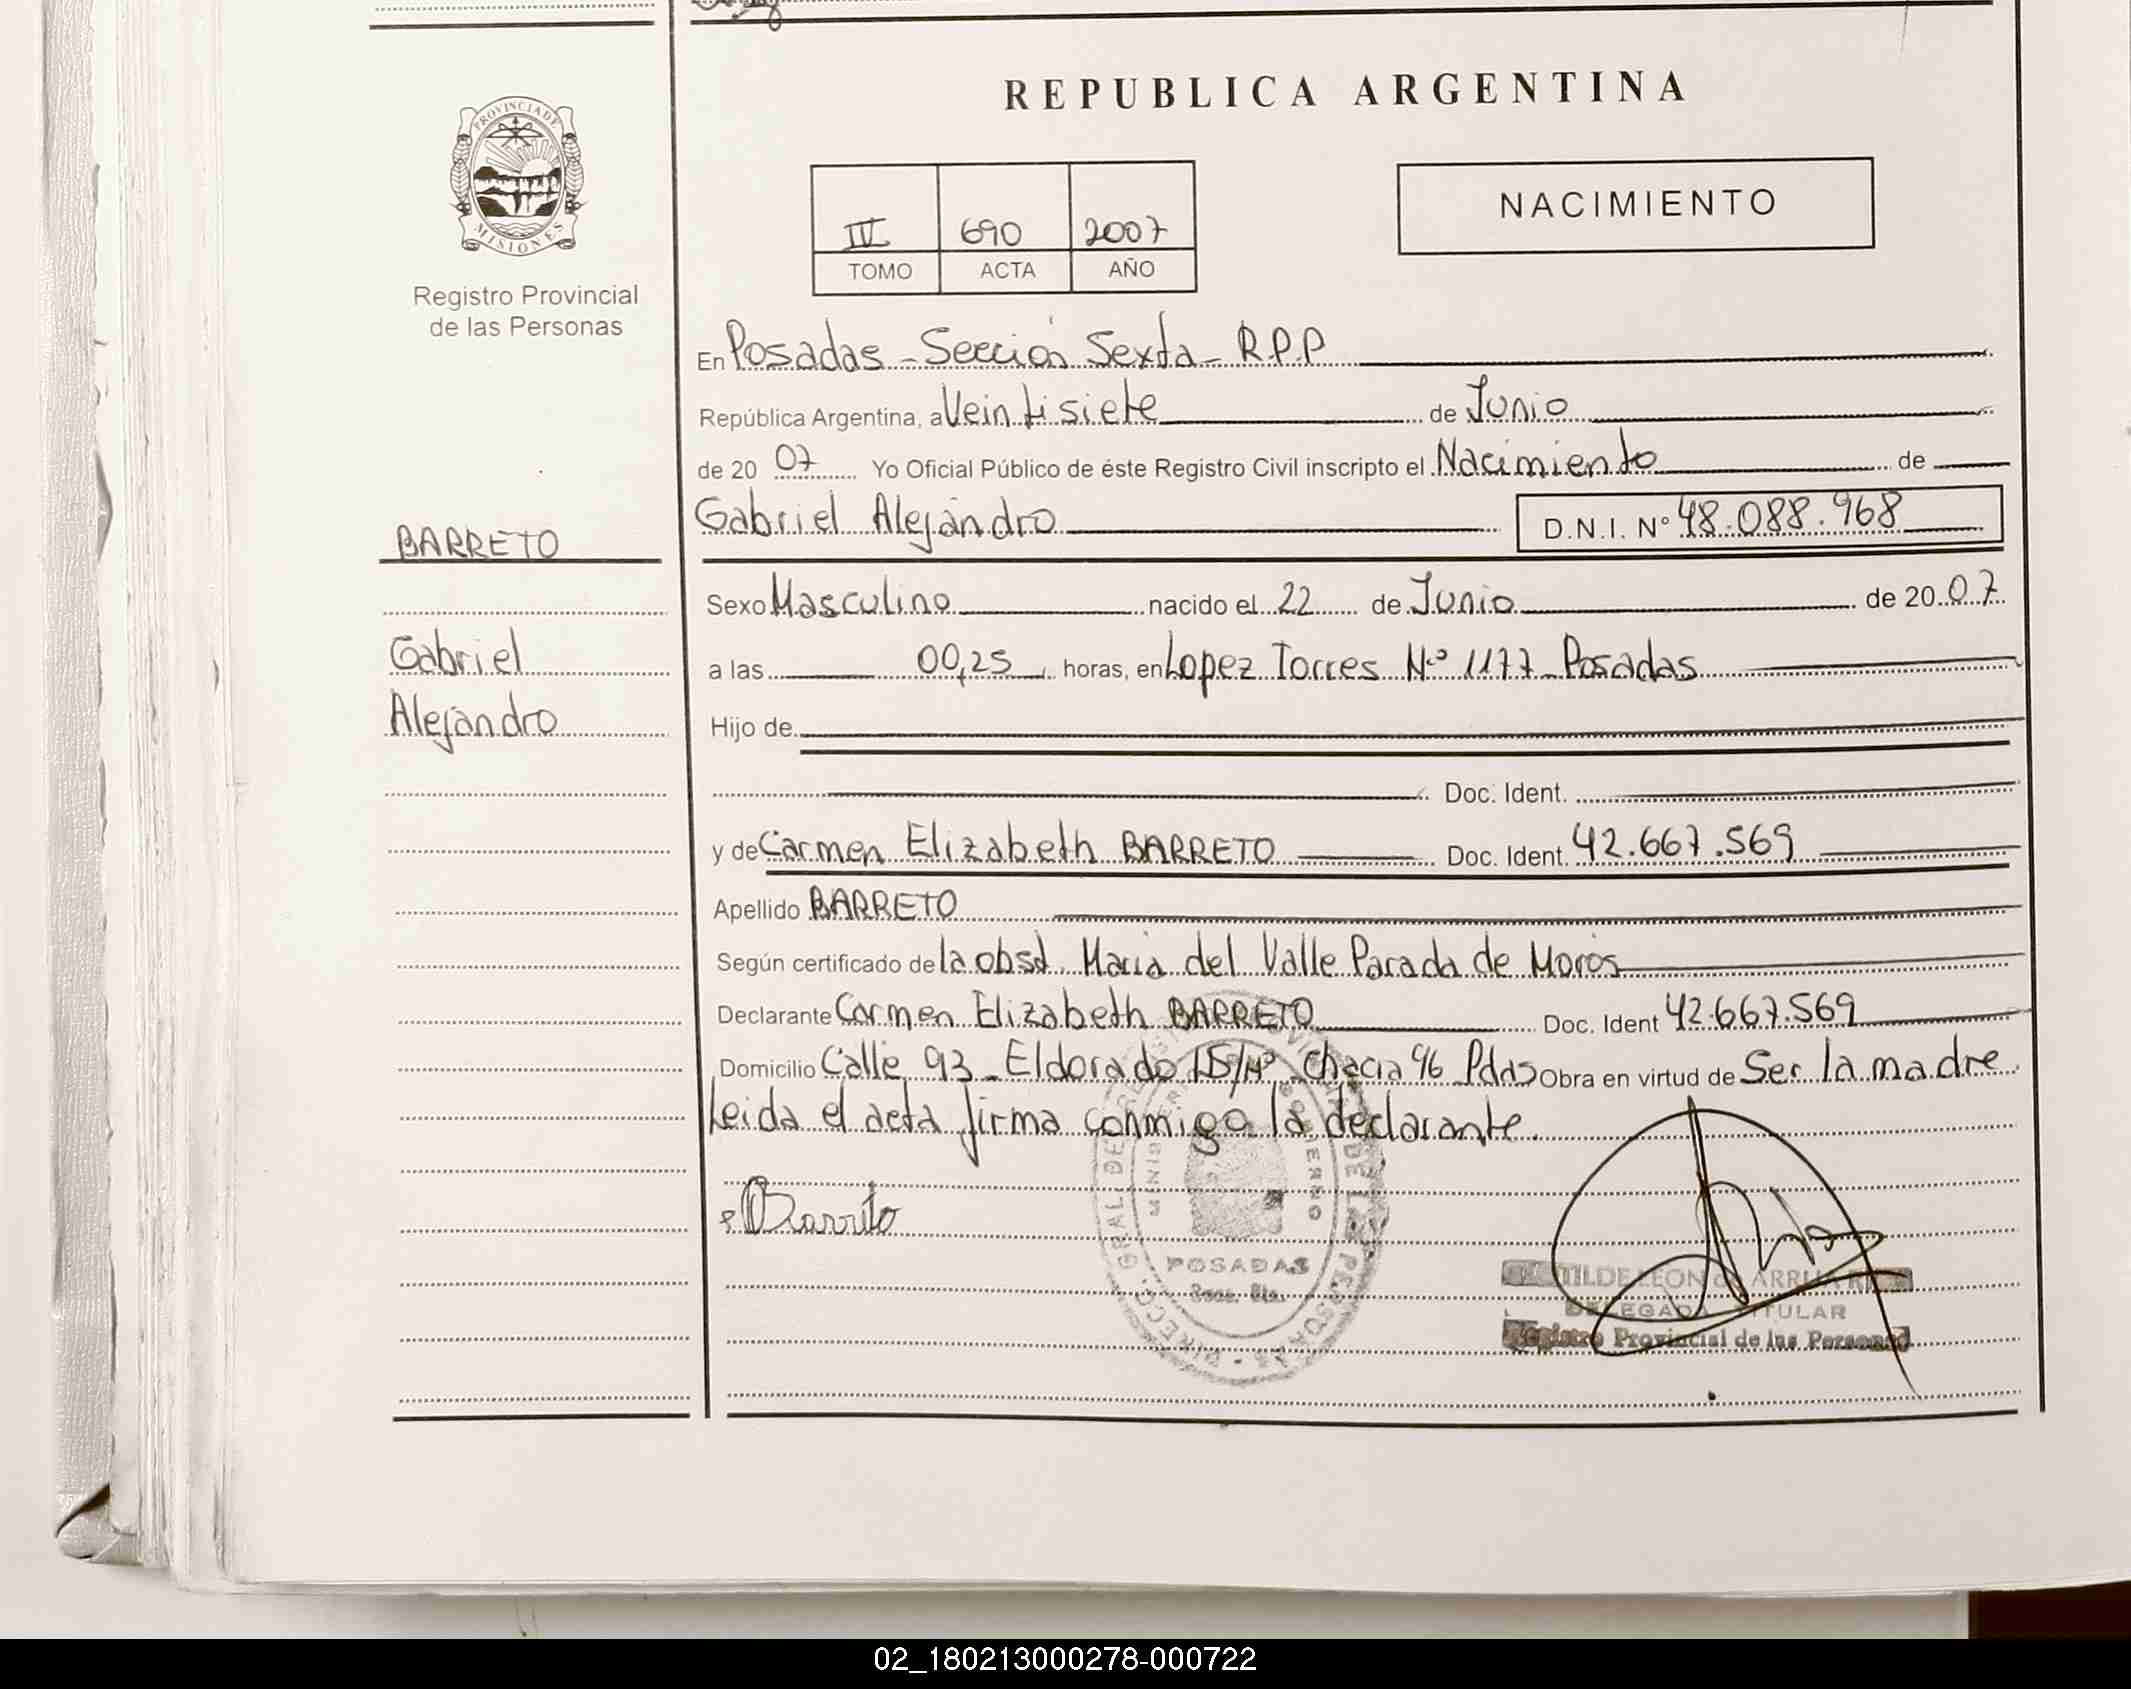 REPUBLICA ARGENTINA
PROVINCIA DE MISIONES
Registro Provincial
de las Personas
IV 690 2007
TOMO ACTA AÑO
NACIMIENTO
En Posadas - Sección Sexta - R.P.P
República Argentina, a Veintisiete de Junio
de 20 07 Yo Oficial Público de éste Registro Civil inscripto el Nacimiento de
Gabriel Alejandro D.N.I. Nº 48.088.968
BARRETO
Gabriel
Alejandro
Sexo Masculino nacido el 22 de Junio de 20 07
a las 00,25 horas, en Lopez Torres Nº 1177 - Posadas
Hijo de
Doc. Ident.
y de Carmen Elizabeth BARRETO Doc. Ident. 42.667.569
Apellido BARRETO
Según certificado de la obst. Maria del Valle Parada de Moros
Declarante Carmen Elizabeth BARRETO Doc. Ident 42.667.569
Domicilio Calle 93 - Eldorado Chacra 96 Pdas Obra en virtud de Ser la madre
Leida el acta firma conmigo la declarante.
Barrito
POSADAS
TILDE LEON de ARRUA
DELEGADA TITULAR
Registro Provincial de las Personas
02_180213000278-000722